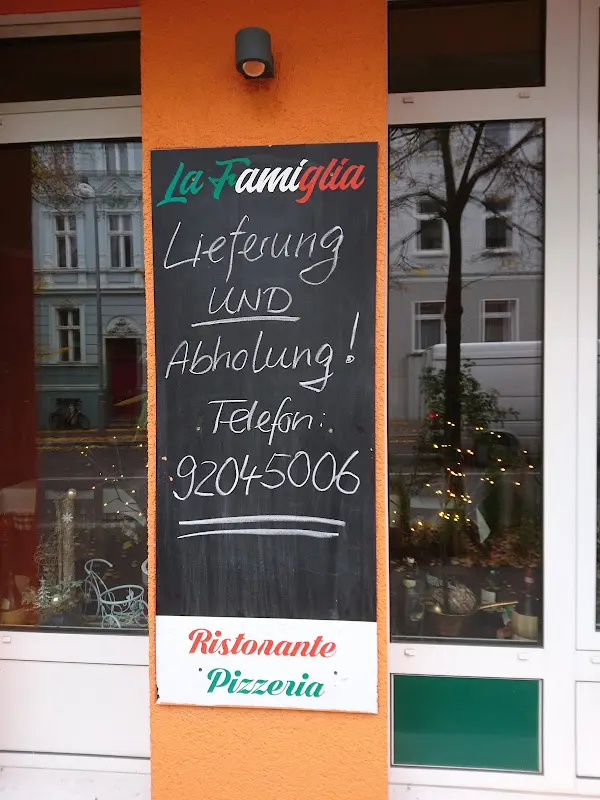 La Famiglia
Lieferung
UND
Abholung!
Telefon:
92045006
Ristorante
Pizzeria